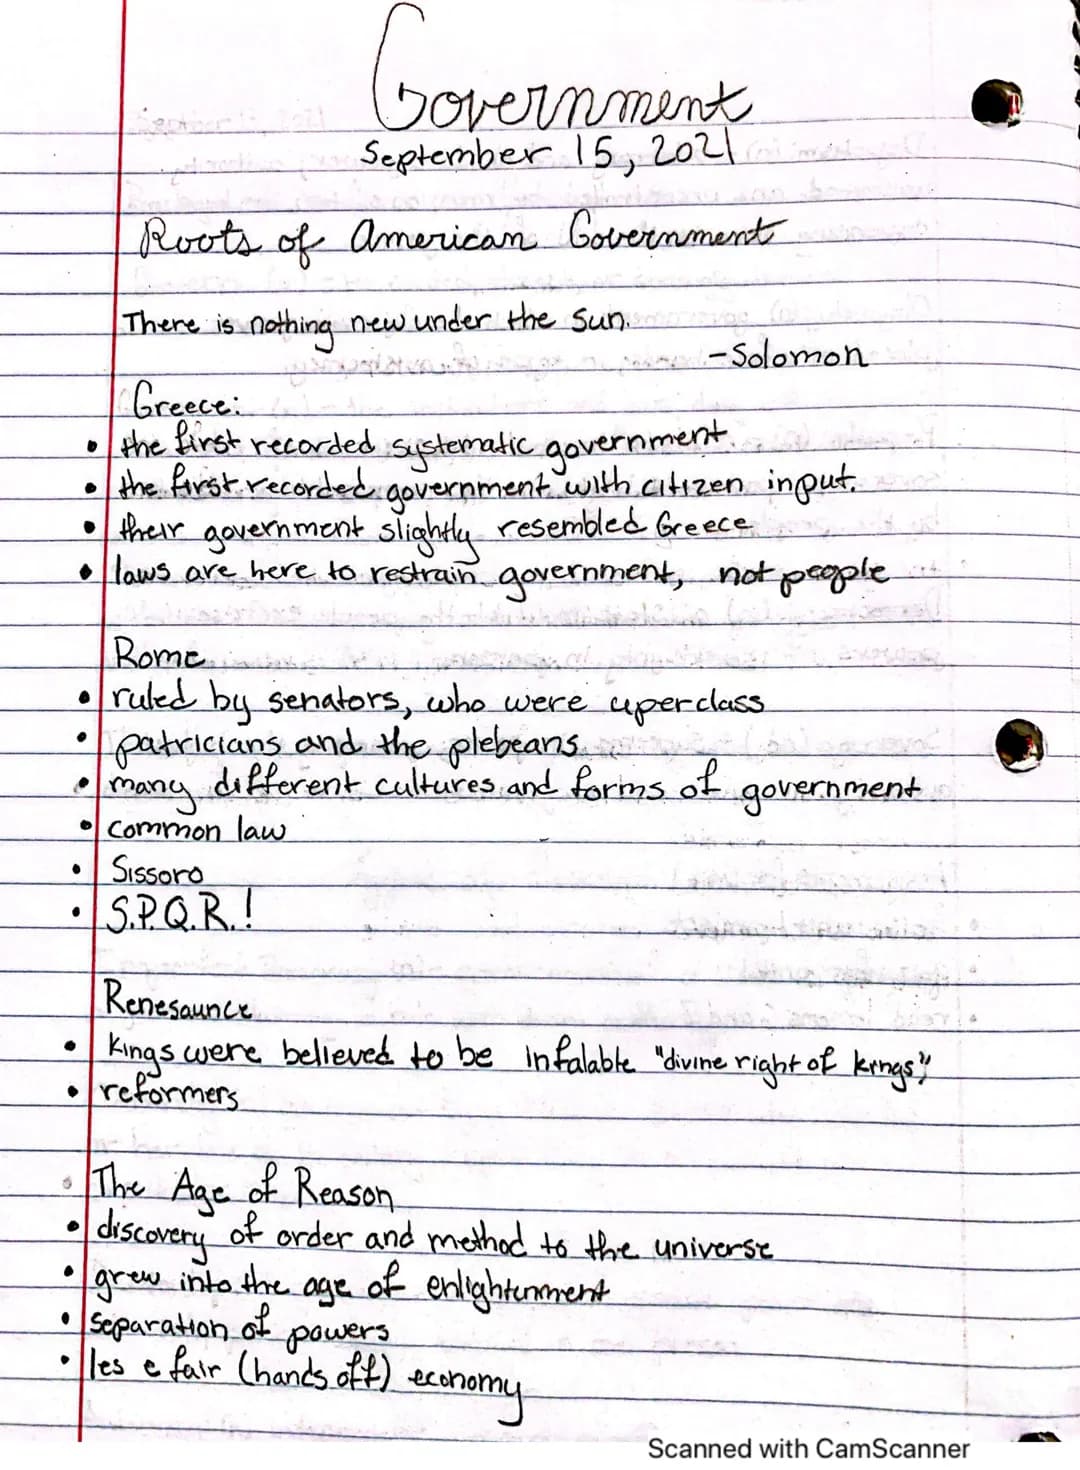 Government
September 15, 2021
Roots of American Government
There is nothing new under the Sun.
-Solomon
Greece:
• the first recorded systematic government.
• the first recorded government with citizen input.
• their government slightly resembled Greece
• laws are here to restrain government, not people
Rome
• ruled by senators, who were uperclass
• patricians and the plebeans
• many different cultures and forms of government
• common law
• Sissoro
• S.P.Q.R.!
Renesaunce
• Kings were believed to be infalable "divine right of kings"
• reformers
• The Age of Reason
• discovery of order and method to the universe
• grew into the age of enlightenment
• separation of powers
• les e fair (hands off) economy
Scanned with CamScanner